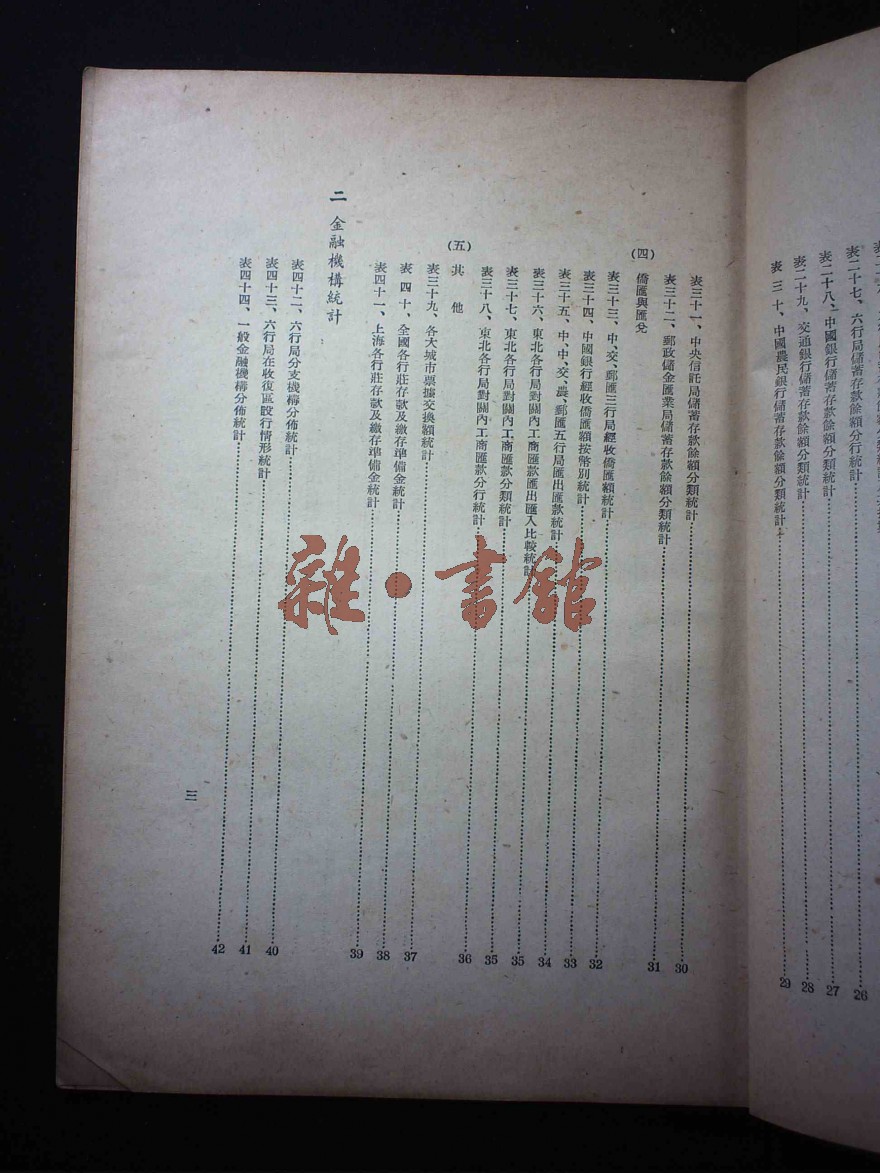 表二十七、六行局儲蓄存款餘額分行統計……26
表二十八、中國銀行儲蓄存款餘額分類統計……27
表二十九、交通銀行儲蓄存款餘額分類統計……28
表 三十、中國農民銀行儲蓄存款餘額分類統計……29
表三十一、中央信託局儲蓄存款餘額分類統計……30
表三十二、郵政儲金匯業局儲蓄存款餘額分類統計……31
(四) 僑匯與匯兌
表三十三、中、交、郵匯三行局經收僑匯額統計……32
表三十四、中國銀行經收僑匯額按幣別統計……33
表三十五、中、中、交、農、郵匯五行局匯出匯款統計……34
表三十六、東北各行局對關內工商匯款匯出匯入比較統計……35
表三十七、東北各行局對關內工商匯款分類統計……35
表三十八、東北各行局對關內工商匯款分行統計……36
(五) 其 他
表三十九、各大城市票據交換額統計……37
表 四十、全國各行莊存款及繳存準備金統計……38
表四十一、上海各行莊存款及繳存準備金統計……39
二 金融機構統計
表四十二、六行局分支機構分佈統計……40
表四十三、六行局在收復區設行情形統計……41
表四十四、一般金融機構分佈統計……42
三
雜·書館